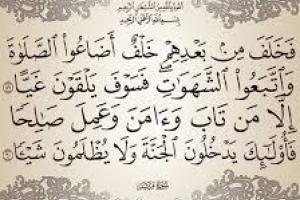 أعوذ بالله من الشيطان الرجيم
بسم الله الرحمن الرحيم
فَخَلَفَ مِنۢ بَعْدِهِمْ خَلْفٌ أَضَاعُوا۟ ٱلصَّلَوٰةَ
وَٱتَّبَعُوا۟ ٱلشَّهَوَٰتِ ۖ فَسَوْفَ يَلْقَوْنَ غَيًّا ٥٩
إِلَّا مَن تَابَ وَءَامَنَ وَعَمِلَ صَٰلِحًا
فَأُو۟لَٰٓئِكَ يَدْخُلُونَ ٱلْجَنَّةَ وَلَا يُظْلَمُونَ شَيْـًٔا ٦٠
سورة مريم